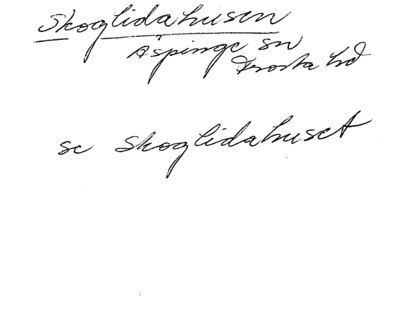 Skoglidahusen
Äspinge sn
Frosta hd
se Skoglidahuset